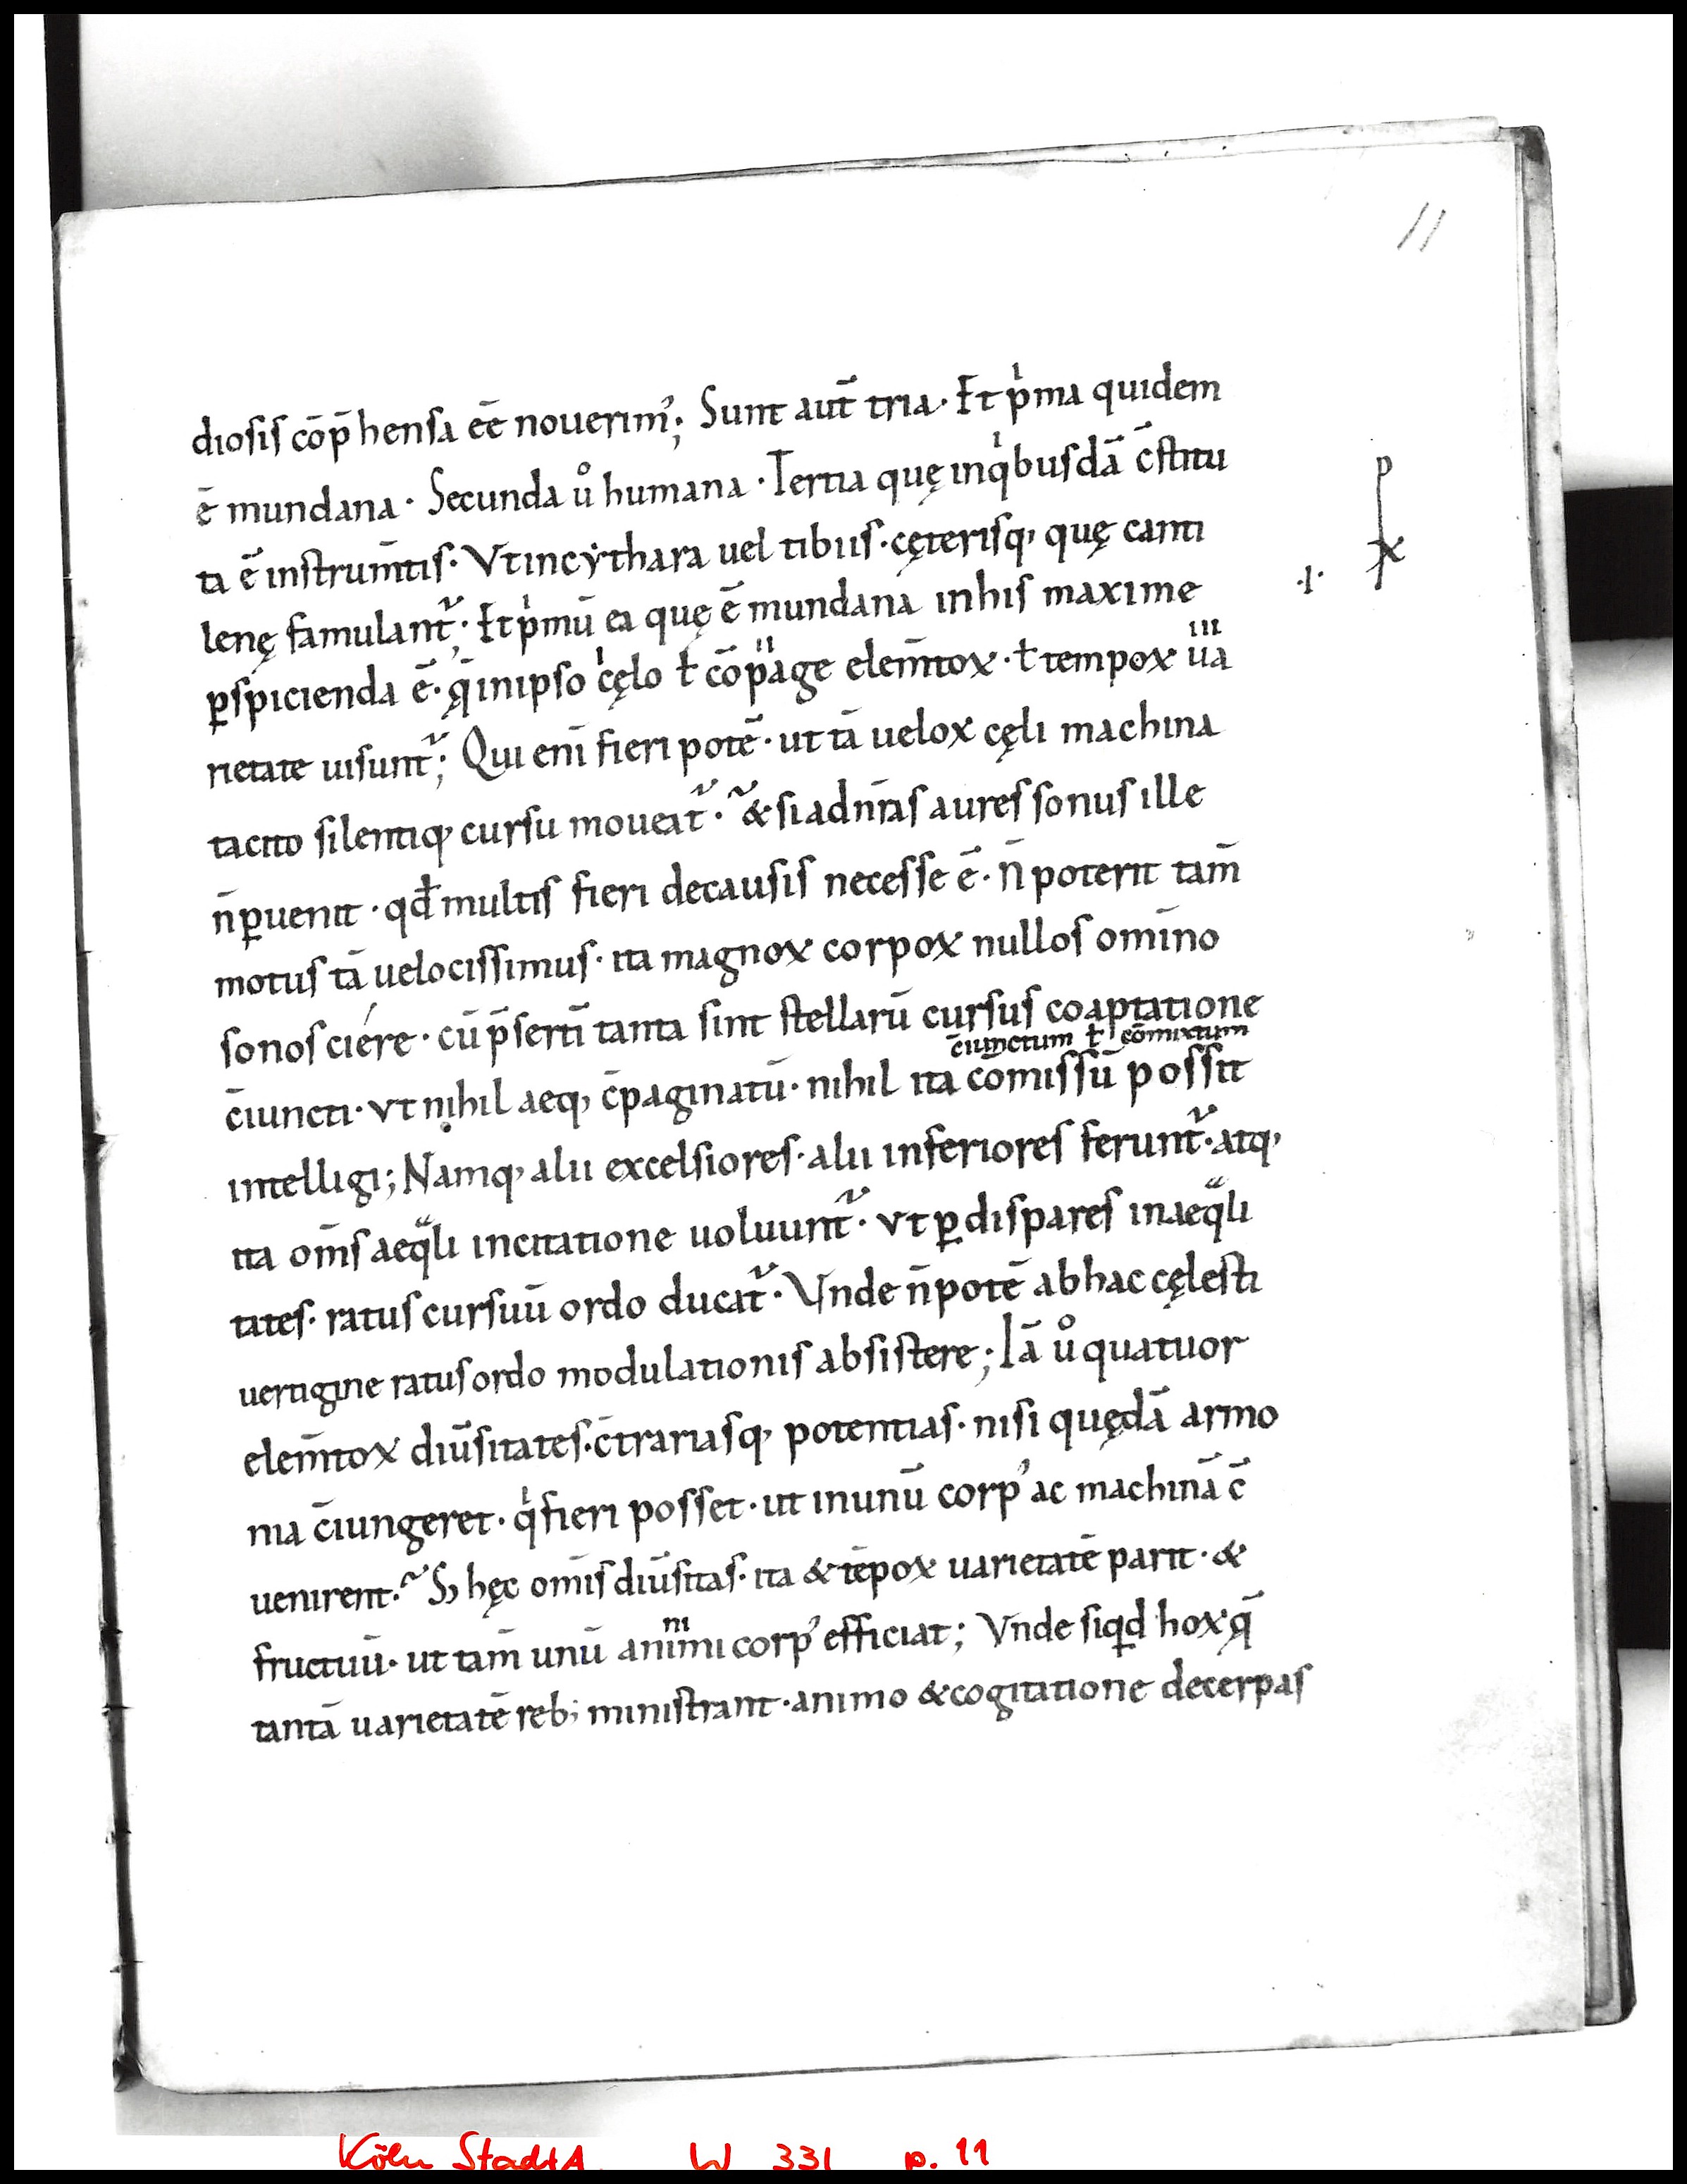 11
diosis cōp̄hensa eē nouerim᾽; Sunt aut̄ tria· Et pͥma quidem
ē mundana· Secunda uͦ humana· Tertia quę inqͥbusdā c̄stitu
ta ē instrum̄tis· Vt incẏthara uel tibiis· cęterisq, quę canti
lenę famulant᷑; Et pͥmū ea quę ē mundana inhis maxime
·I·
ꝑspicienda ē· q̄ inipso cęlo ƚ cōpage elem̄toꝝ· ƚ tempoꝝ ua
rietate uisunt᷑; Qui enī fieri potē· ut tā uelox cęli machina
tacito silentiq, cursu moueat᷑· & siadnr̄as aures sonus ille
n̄ ꝑuenit· qđ multis fieri decausis necesse ē· n̄ poterit tam̄
motus tā uelocissimus· ita magnoꝝ corpoꝝ nullos omīno
sonos ciére· cū p̄sertī tanta sint stellarū cursus coaptatione
c̄iunctum ƚ cōmixtum
c̄iuncti· vt nihil aeq, c̄paginatū· nihil ita cōmissū possit
intelligi; Namq, alii excelsiores· alii inferiores ferunt᷑· atq,
ita om̄s aeqᷓli incitatione uoluunt᷑· vt ꝑ dispares inaeqᷓli
tates· ratus cursuū ordo ducat᷑· Vnde n̄ potē abhac cęlesti
uertigine ratus ordo modulationis absistere; Iā uͦ quatuor
elem̄toꝝ diūsitates· c̄trariasq, potentias· nisi quędā armo
nia c̄iungeret· qͥ fieri posset· ut inunū corp᾽ ac machinā c̄
uenirent· S, hęc omīs diūsitas· ita & tēpoꝝ uarietatē parit· &
fructuū· ut tam̄ unū animi corp᾽ efficiat; Vnde siqd hoꝝ q̄
tantā uarietatē reb; ministrant· animo & cogitatione decerpas
Köln StadtA. W 331 p. 11